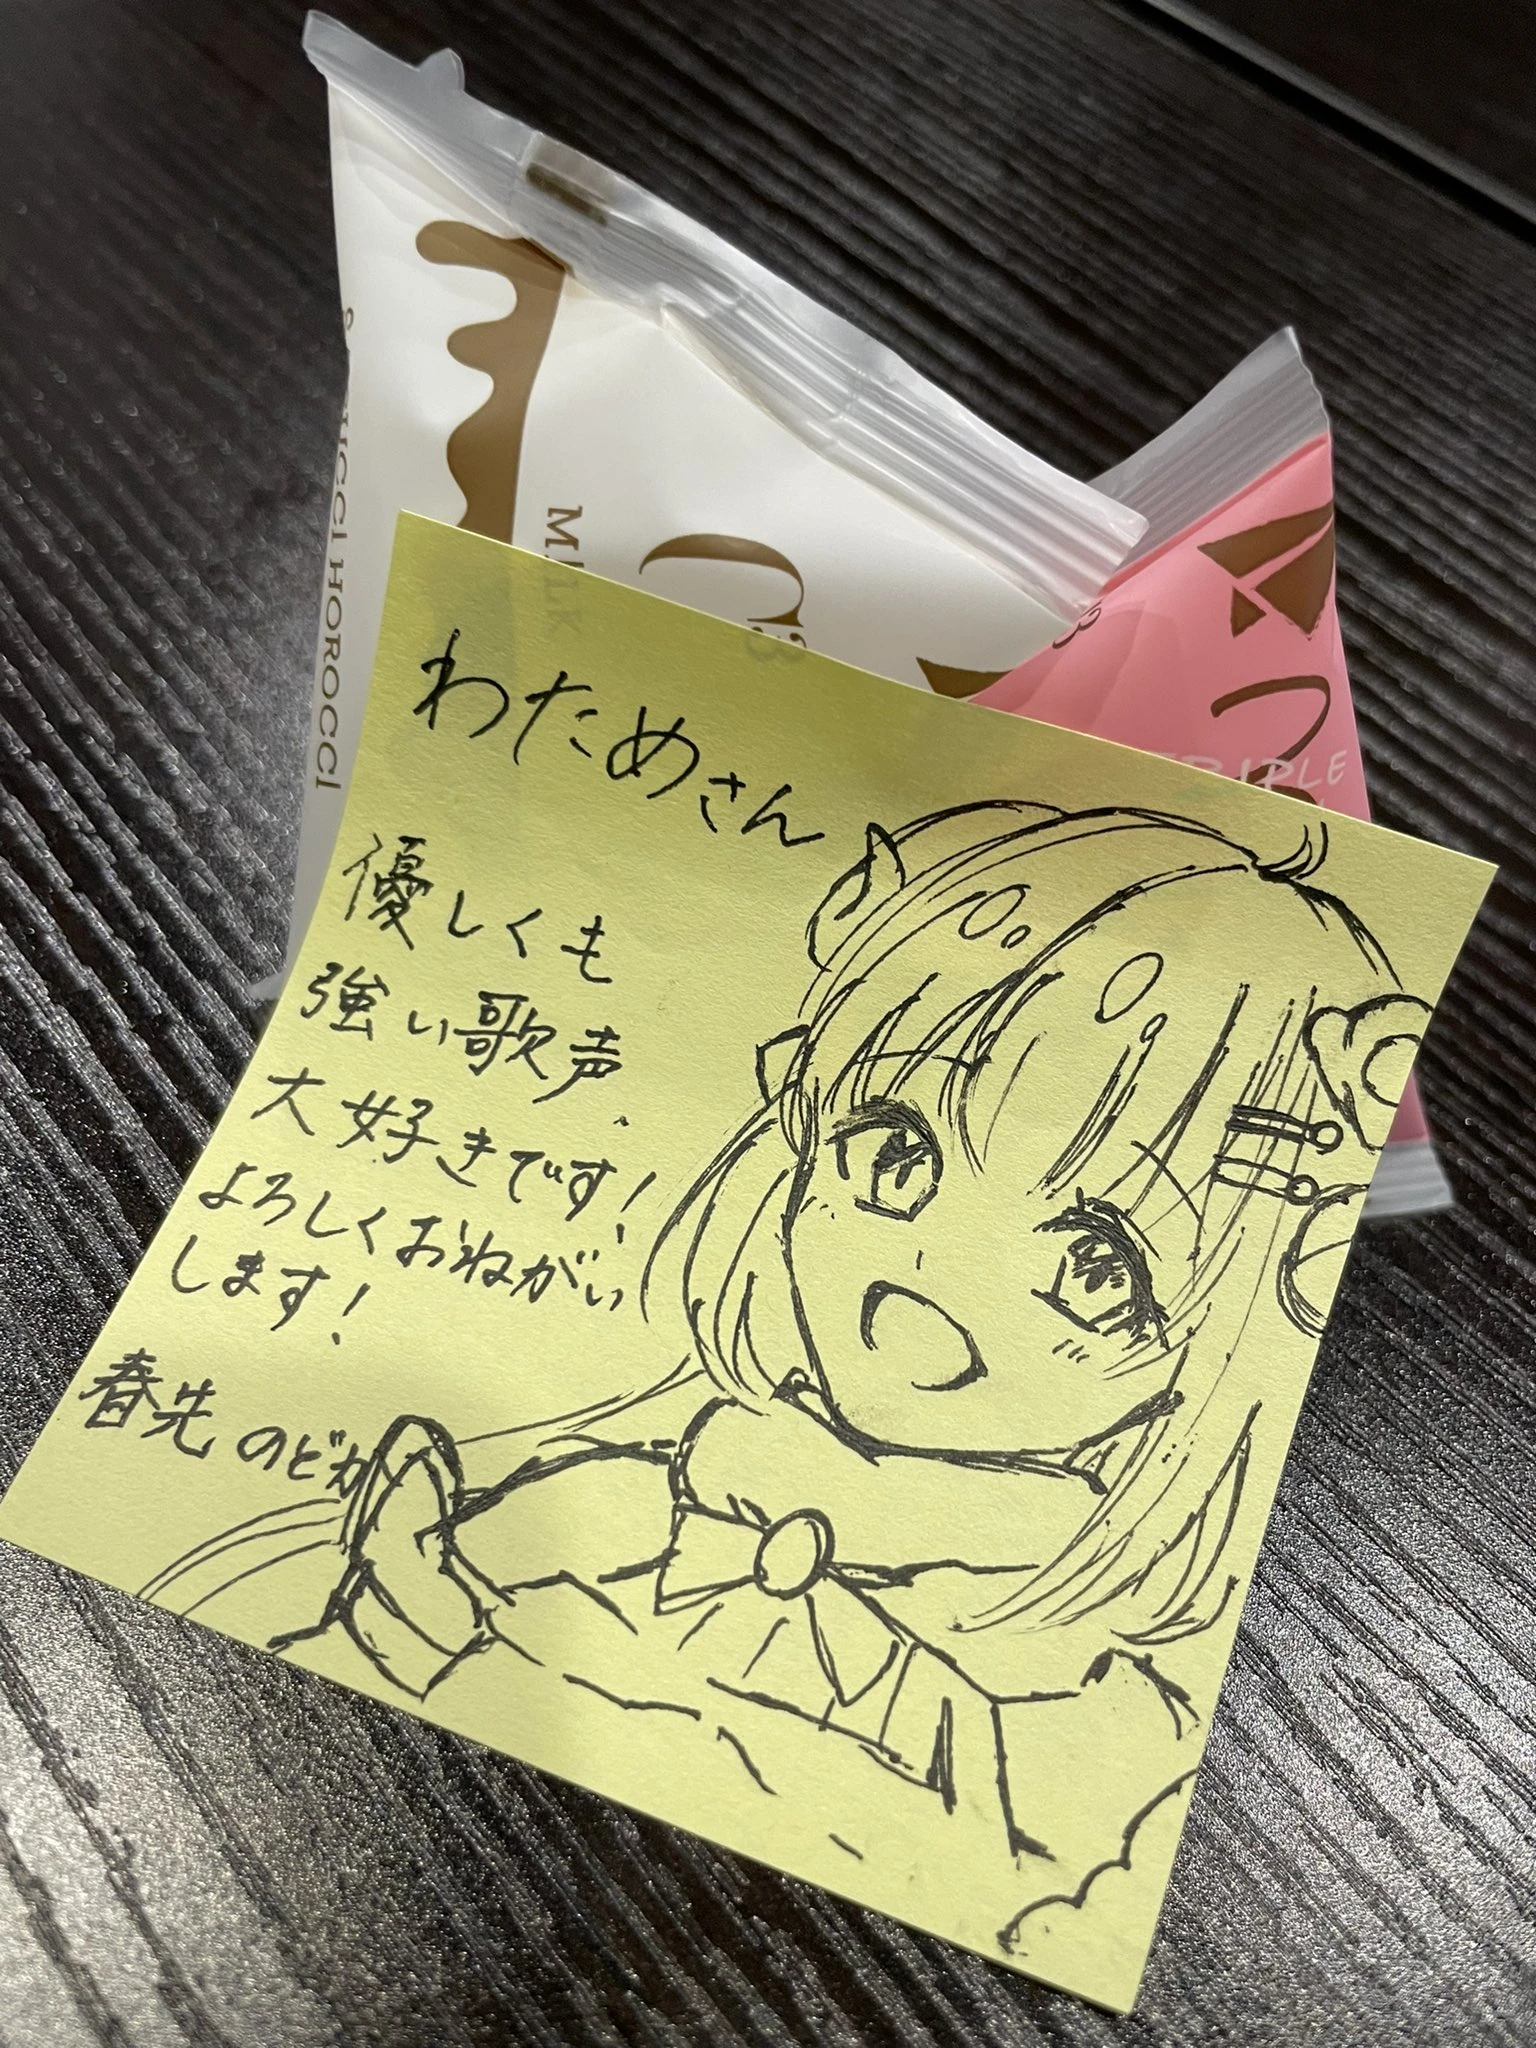 MILK
C3
HOROCCI
TRIPLE
わためさん
優しくも
強い歌声、
大好きです！
よろしくおねがい
します！
春先のどか